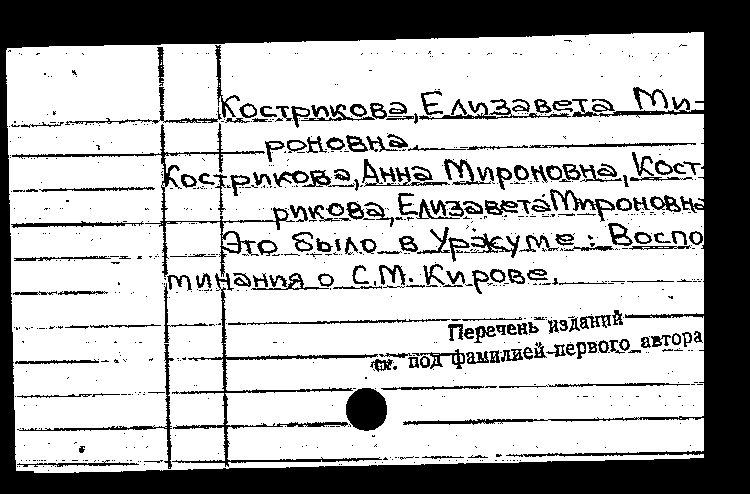 Кострикова, Елизавета Ми-
роновна.
Кострикова, Анна Мироновна, Кост-
рикова, Елизавета Мироновна
Это было в Уржуме: Воспо
минания о С.М. Кирове.
Перечень изданий
см. под фамилией первого автора